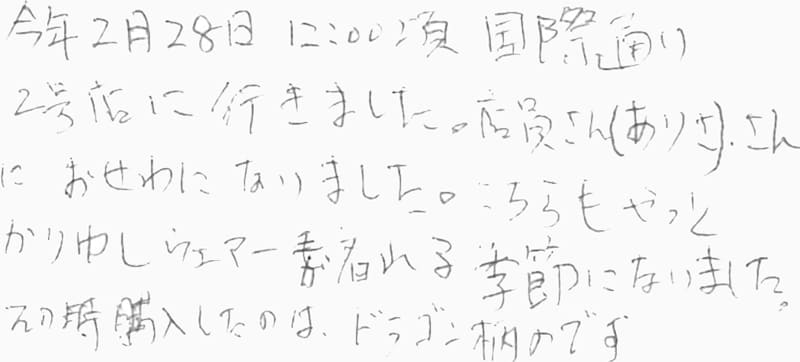 今年2月28日 12:00頃 国際通り
2号店に行きました。店員さん(ありさ).さん
におせわになりました。こちらもやっと
かりゆしウェアーが着れる季節になりました。
その時購入したのは、ドラゴン柄のです